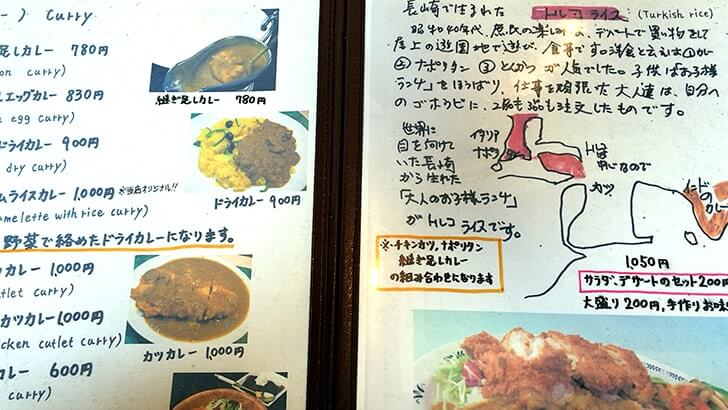 ) Curry
足しカレー 780円
on curry)
エッグカレー 830円
e egg curry)
ドライカレー 900円
dry curry)
ムライスカレー 1,000円 ※当店オリジナル!!
melette with rice curry)
野菜で絡めたドライカレーになります。
カレー 1,000円
tlet curry)
カツカレー 1,000円
cken cutlet curry)
カレー 600円
curry)
継ぎ足しカレー 780円
ドライカレー 900円
カツカレー 1,000円
長崎で生まれた トルコライス (Turkish rice)
昭和40年代、庶民の楽しみは、デパートで買い物をして
屋上の遊園地で遊び、食事です。洋食と云えば①カレー
②ナポリタン ③とんかつ が人気でした。子供はお子様
ランチをほうばり、仕事を頑張た大人達は、自分へ
のゴホウビに、2品も3品も注文したものです。
世界に
目を向けて
いた長崎
から生れた
「大人のお子様ランチ」
が トルコライスです。
イタリア
ナポリ
トルコ
中心なので
カツ
インド
の
カレー
※チキンカツ、ナポリタン
継ぎ足しカレー
の組み合わせになります
1,050円
サラダ、デザートのセット200円
大盛り200円、手作りお味